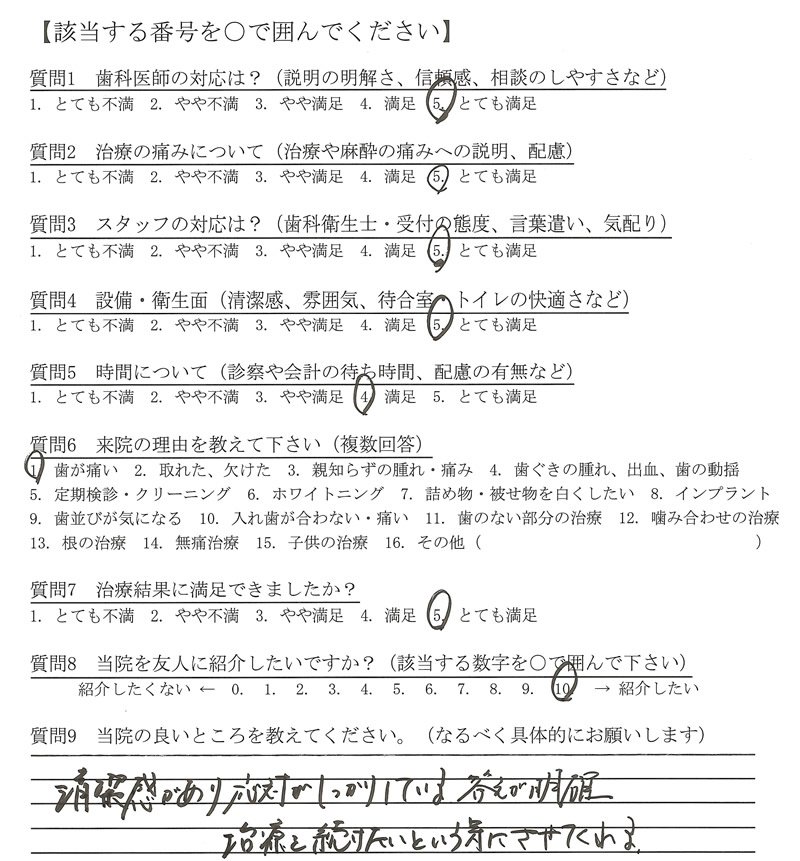 【該当する番号を〇で囲んでください】
質問1　歯科医師の対応は？（説明の明解さ、信頼感、相談のしやすさなど）
1. とても不満　2. やや不満　3. やや満足　4. 満足　5. とても満足
質問2　治療の痛みについて（治療や麻酔の痛みへの説明、配慮）
1. とても不満　2. やや不満　3. やや満足　4. 満足　5. とても満足
質問3　スタッフの対応は？（歯科衛生士・受付の態度、言葉遣い、気配り）
1. とても不満　2. やや不満　3. やや満足　4. 満足　5. とても満足
質問4　設備・衛生面（清潔感、雰囲気、待合室・トイレの快適さなど）
1. とても不満　2. やや不満　3. やや満足　4. 満足　5. とても満足
質問5　時間について（診察や会計の待ち時間、配慮の有無など）
1. とても不満　2. やや不満　3. やや満足　4. 満足　5. とても満足
質問6　来院の理由を教えて下さい（複数回答）
1. 歯が痛い　2. 取れた、欠けた　3. 親知らずの腫れ・痛み　4. 歯ぐきの腫れ、出血、歯の動揺
5. 定期検診・クリーニング　6. ホワイトニング　7. 詰め物・被せ物を白くしたい　8. インプラント
9. 歯並びが気になる　10. 入れ歯が合わない・痛い　11. 歯のない部分の治療　12. 噛み合わせの治療
13. 根の治療　14. 無痛治療　15. 子供の治療　16. その他（　　　　　）
質問7　治療結果に満足できましたか？
1. とても不満　2. やや不満　3. やや満足　4. 満足　5. とても満足
質問8　当院を友人に紹介したいですか？（該当する数字を〇で囲んで下さい）
紹介したくない ← 0. 1. 2. 3. 4. 5. 6. 7. 8. 9. 10 → 紹介したい
質問9　当院の良いところを教えてください。（なるべく具体的にお願いします）
清潔感があり応対がしっかりしています 答えが明確
治療を続けたいという気にさせてくれます